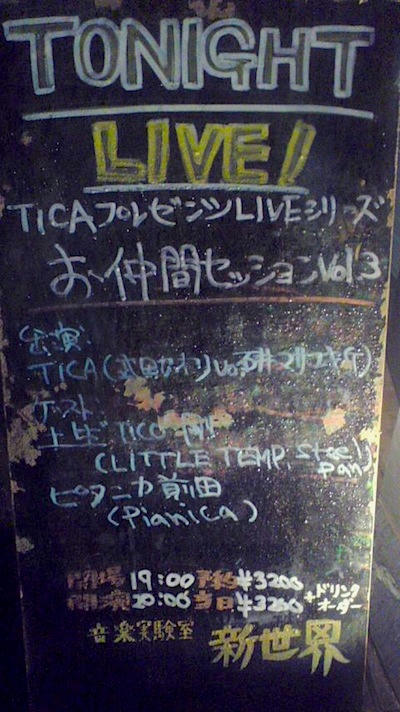 TONIGHT
LIVE!
TICAプレゼンツLIVEシリーズ
お仲間セッションVol3
出演
TICA(武田カオリVo,石井マサユキG)
ゲスト
土生"TICO"剛
(LITTLE TEMPO, Steel pan)
ピアニカ前田
(Pianica)
開場 19:00 予約¥3200
開演20:00 当日¥3200 +ドリンクオーダー
音楽実験室 新世界